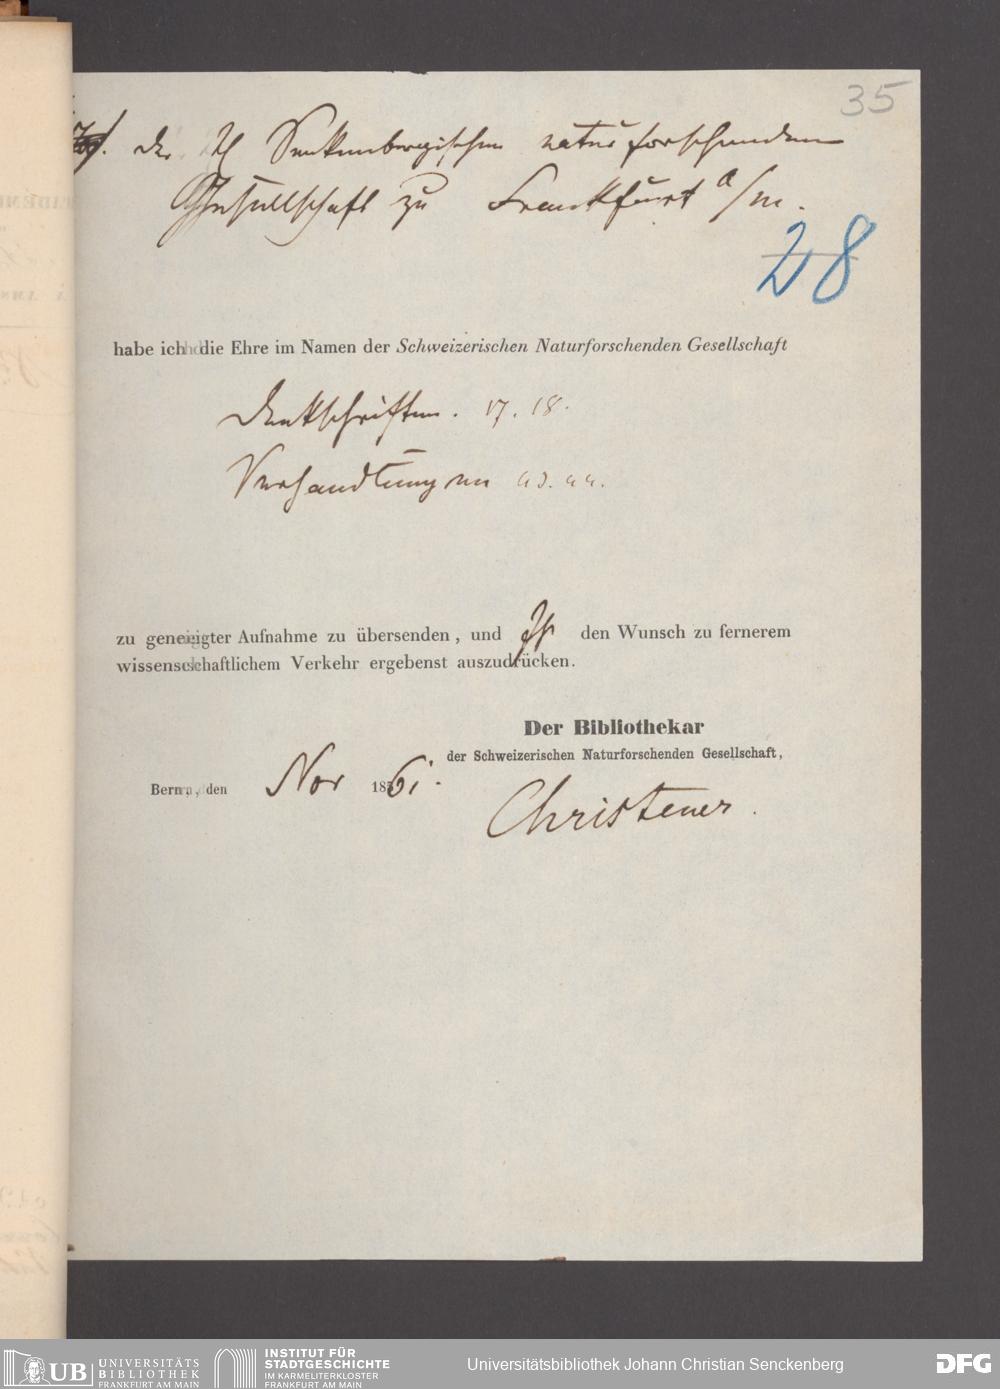 35
der Senkenbergischen naturforschenden
Gesellschaft zu Frankfurt a/m.
28
habe ich die Ehre im Namen der Schweizerischen Naturforschenden Gesellschaft
Denkschriften. 17. 18.
Verhandlungen 43. 44.
zu geneigter Aufnahme zu übersenden, und den Wunsch zu fernerem
wissenschaftlichem Verkehr ergebenst auszudrücken.
Der Bibliothekar
der Schweizerischen Naturforschenden Gesellschaft,
Bern, den Nov 1861.
Christener.
UB UNIVERSITÄTS
BIBLIOTHEK
FRANKFURT AM MAIN
INSTITUT FÜR
STADTGESCHICHTE
IM KARMELITERKLOSTER
FRANKFURT AM MAIN
Universitätsbibliothek Johann Christian Senckenberg
DFG